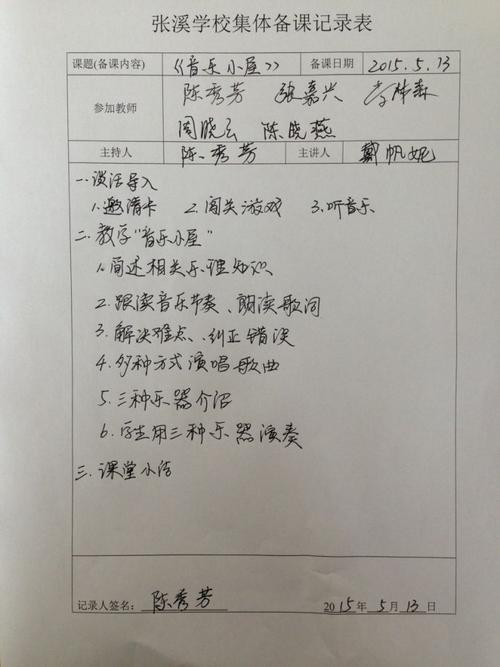 张溪学校集体备课记录表
课题(备课内容) 《音乐小屋》 备课日期 2015.5.13
参加教师 陈秀芳 张嘉兴 李伟森
周晓云 陈晓燕
主持人 陈秀芳 主讲人 戴帆妮
一.谈话导入
1.邀请卡 2.闯关游戏 3.听音乐
二.教学“音乐小屋”
1.简述相关乐理知识
2.跟读音乐节奏、朗读歌词
3.解决难点、纠正错误
4.多种方式演唱歌曲
5.三种乐器介绍
6.学生用三种乐器演奏
三.课堂小结
记录人签名: 陈秀芳 2015年5月13日